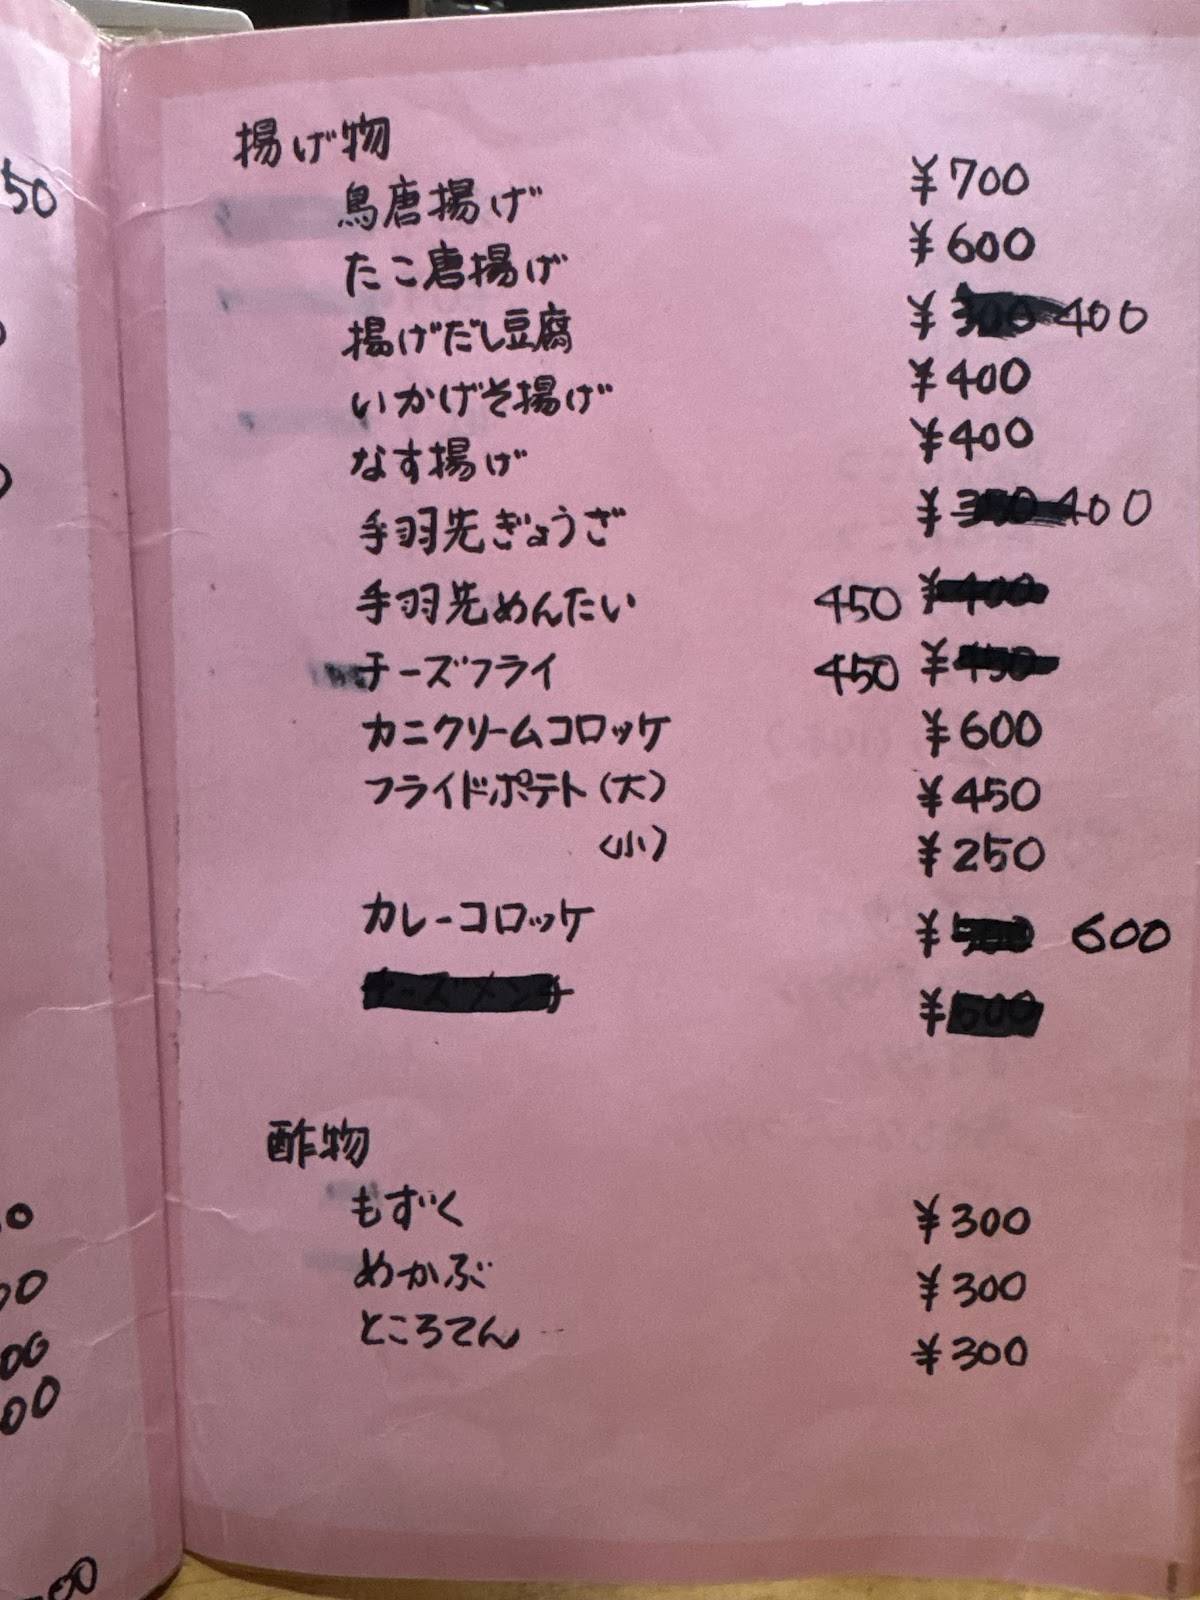 揚げ物
鳥唐揚げ ¥700
たこ唐揚げ ¥600
揚げだし豆腐 ¥300 400
いかげそ揚げ ¥400
なす揚げ ¥400
手羽先ぎょうざ ¥350 400
手羽先めんたい 450 ¥400
チーズフライ 450 ¥450
カニクリームコロッケ ¥600
フライドポテト(大) ¥450
(小) ¥250
カレーコロッケ ¥ 600
チーズメンチ ¥600
酢物
もずく ¥300
めかぶ ¥300
ところてん ¥300